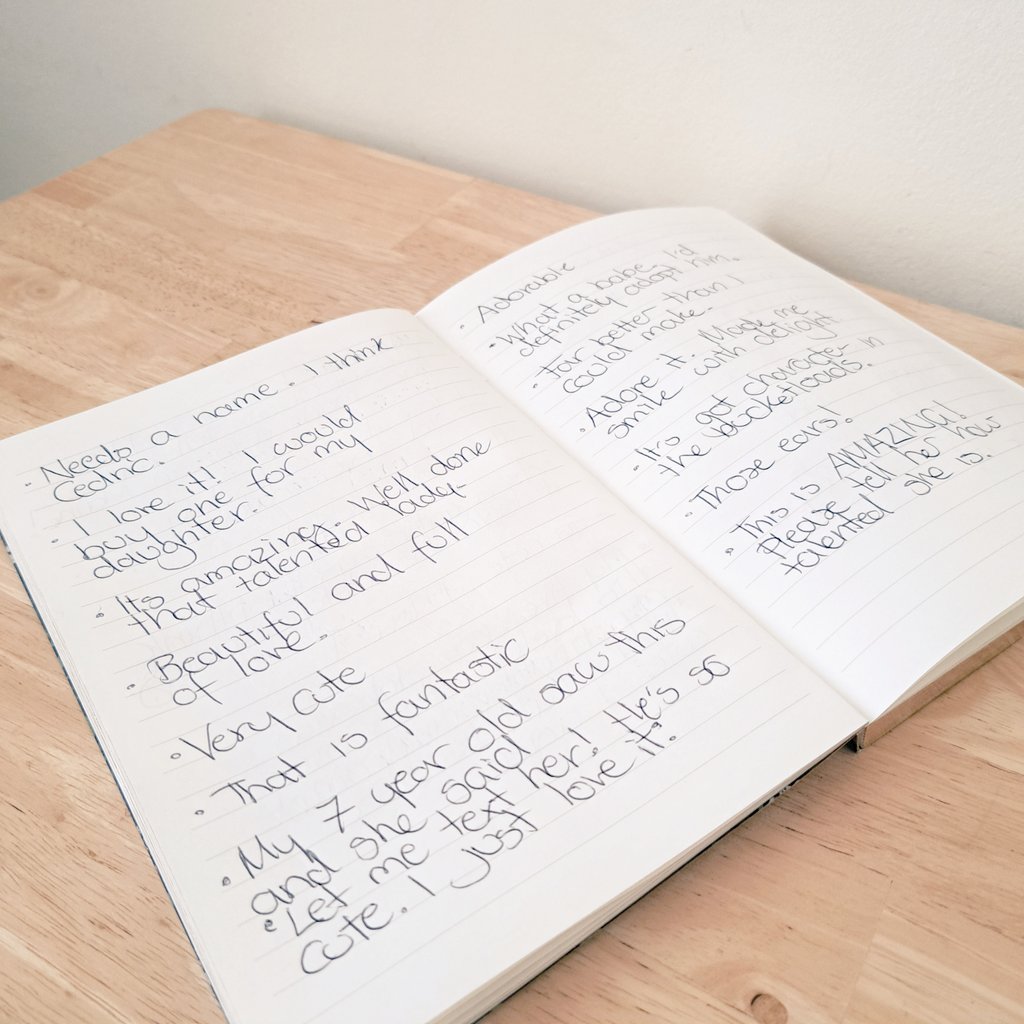 • Needs a name. I think
Cedric.
• I love it! I would
buy one for my
daughter.
• Its amazing. Well done
that talented lady.
• Beautiful and full
of love.
• Very cute
• That is fantastic
• My 7 year old saw this
and she said
"Let me text her! He's so
cute. I just love it.
• Adorable
• What a babe. I'd
definitely adopt him.
• Far better than I
could make.
• Adore it. Made me
smile with delight
• It's got character in
the bucketloads.
• Those ears!
• This is AMAZING!
Please tell her how
talented she is.